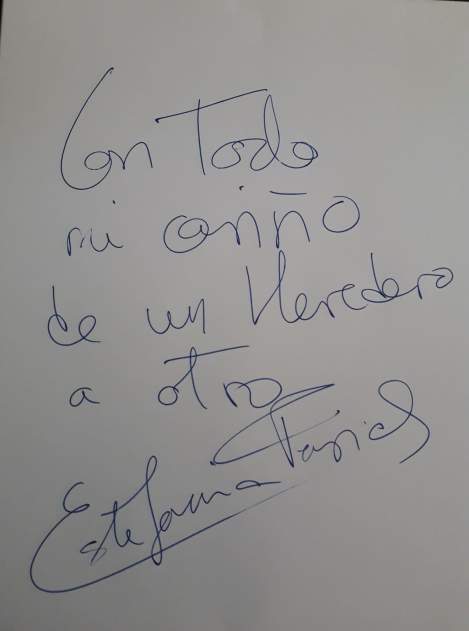 Con Todo
mi cariño
de un Heredero
a otro
Estefania